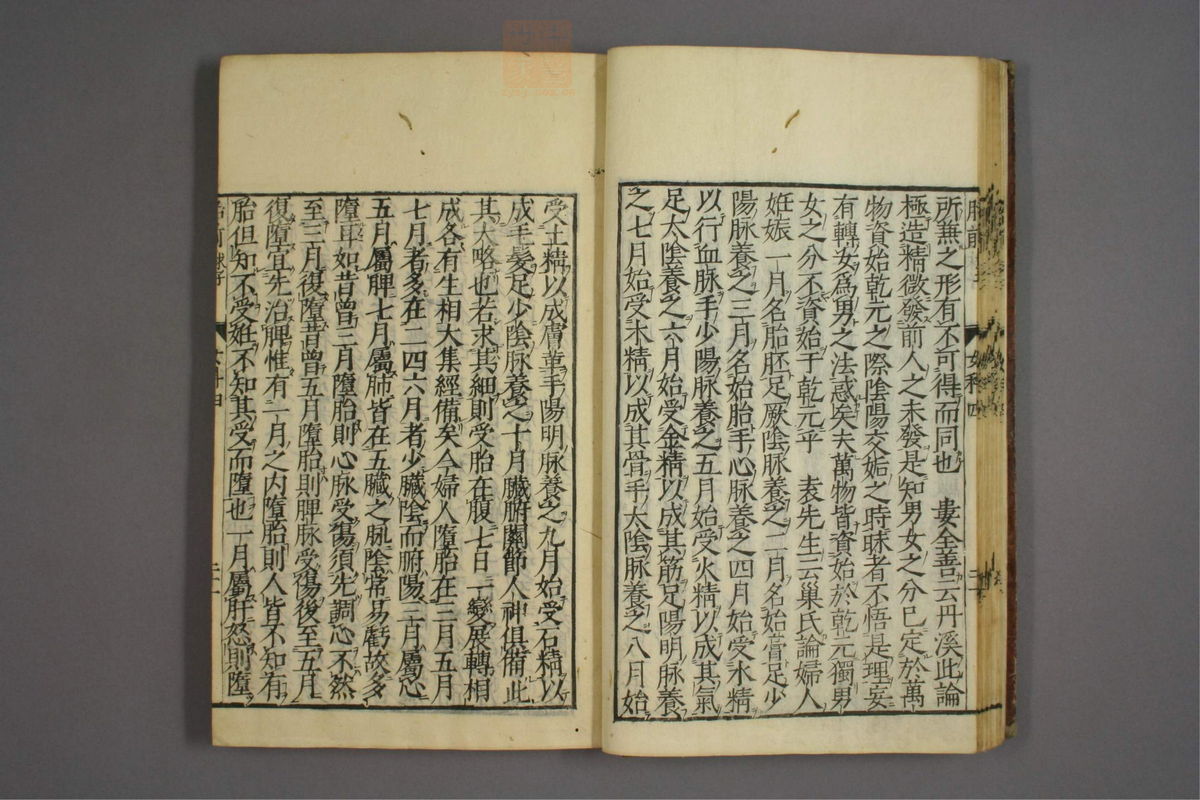 所無之形有不可得而同也　婁全善云丹溪此論
極造精微發前人之未發是知男女之分已定於萬
物資始乾元之際陰陽交姤之時昧者不悟是理妄
有轉女爲男之法惑矣夫萬物皆資始於乾元獨男
女之分不資始于乾元乎　袁先生云巢氏論婦人
姙娠一月名胎胚足厥陰脉養之二月名始膏足少
陽脉養之三月名始胎手心脉養之四月始受水精
以行血脉手少陽脉養之五月始受火精以成其氣
足太陰養之六月始受金精以成其筋足陽明脉養
之七月始受木精以成其骨手太陰脉養之八月始
受土精以成膚革手陽明脉養之九月始受石精以
成毛髮足少陰脉養之十月臟腑關節人神俱備此
其大略也若求其細則受胎在腹七日一變展轉相
成各有生相大集經備矣今婦人墮胎在三月五月
七月者多在二四六月者少臟陰而腑陽三月屬心
五月屬脾七月屬肺皆在五臟之脉陰常易虧故多
墮耳如昔曾三月墮胎則心脉受傷須先調心不然
至三月復墮昔曾五月墮胎則脾脉受傷後至五月
復墮宜先治脾惟有一月之内墮胎則人皆不知有
胎但知不受姙不知其受而墮也一月屬肝怒則墮